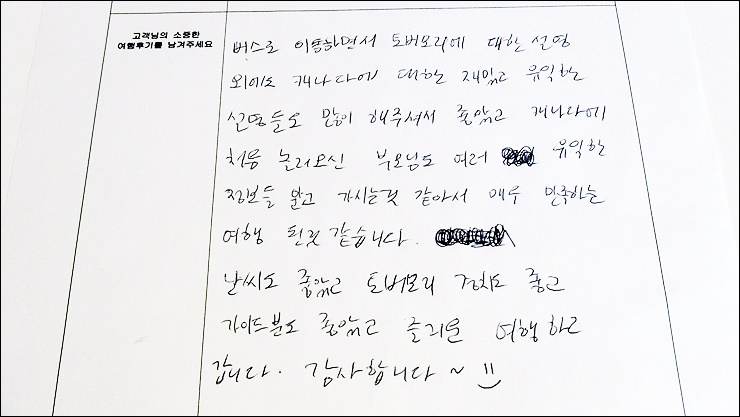 고객님의 소중한
여행후기를 남겨주세요
버스로 이동하면서 토버모리에 대한 설명
외에도 캐나다에 대한 재밌고 유익한
설명들도 많이 해주셔서 좋았고 캐나다에
처음 놀러오신 부모님도 여러 유익한
정보들 알고 가시는것 같아서 매우 만족하는
여행 된것 같습니다.
날씨도 좋았고 토버모리 경치도 좋고
가이드분도 좋았고 즐거운 여행 하고
갑니다. 감사합니다 ~ =)